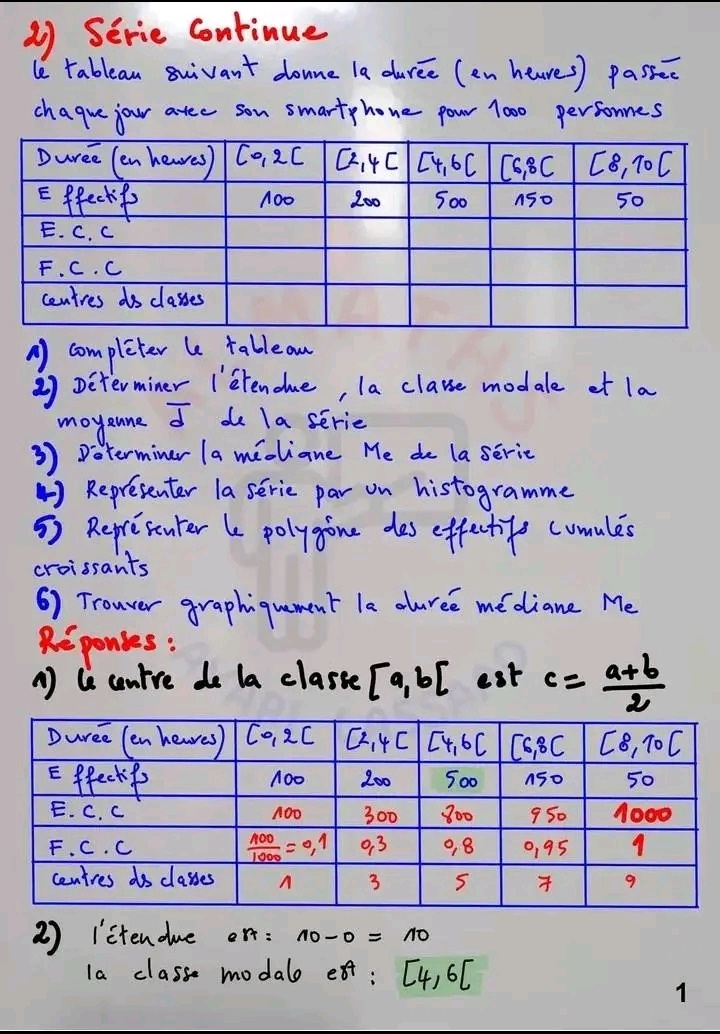 2) Série Continue
le tableau suivant donne la durée (en heures) passée
chaque jour avec son smartphone pour 1000 personnes
Durée (en heures) [0,2[ [2,4[ [4,6[ [6,8[ [8,10[
Effectifs 100 200 500 150 50
E.C.C
F.C.C
centres ds classes
1) compléter le tableau
2) Déterminer l'étendue, la classe modale et la
moyenne d̅ de la série
3) Déterminer la médiane Me de la série
4) Représenter la série par un histogramme
5) Représenter le polygône des effectifs cumulés
croissants
6) Trouver graphiquement la durée médiane Me
Réponses :
1) le centre de la classe [a,b[ est c = a+b/2
Durée (en heures) [0,2[ [2,4[ [4,6[ [6,8[ [8,10[
Effectifs 100 200 500 150 50
E.C.C 100 300 800 950 1000
F.C.C 100/1000 = 0,1 0,3 0,8 0,95 1
centres ds classes 1 3 5 7 9
2) l'étendue est : 10-0 = 10
la classe modale est : [4,6[
1